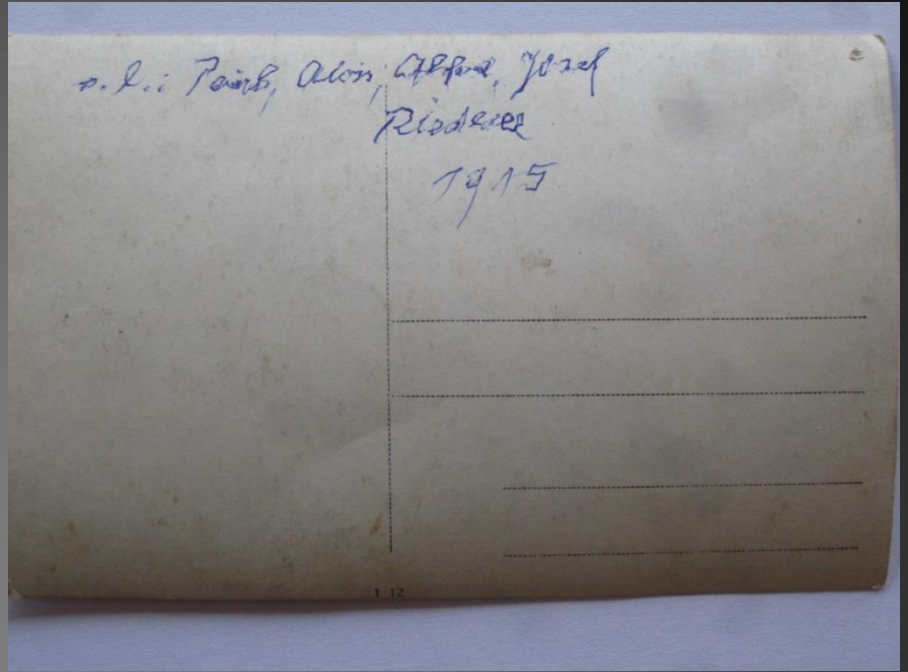 v. l.: Alois, Alfred, Josef
Riederer
1915
1 12